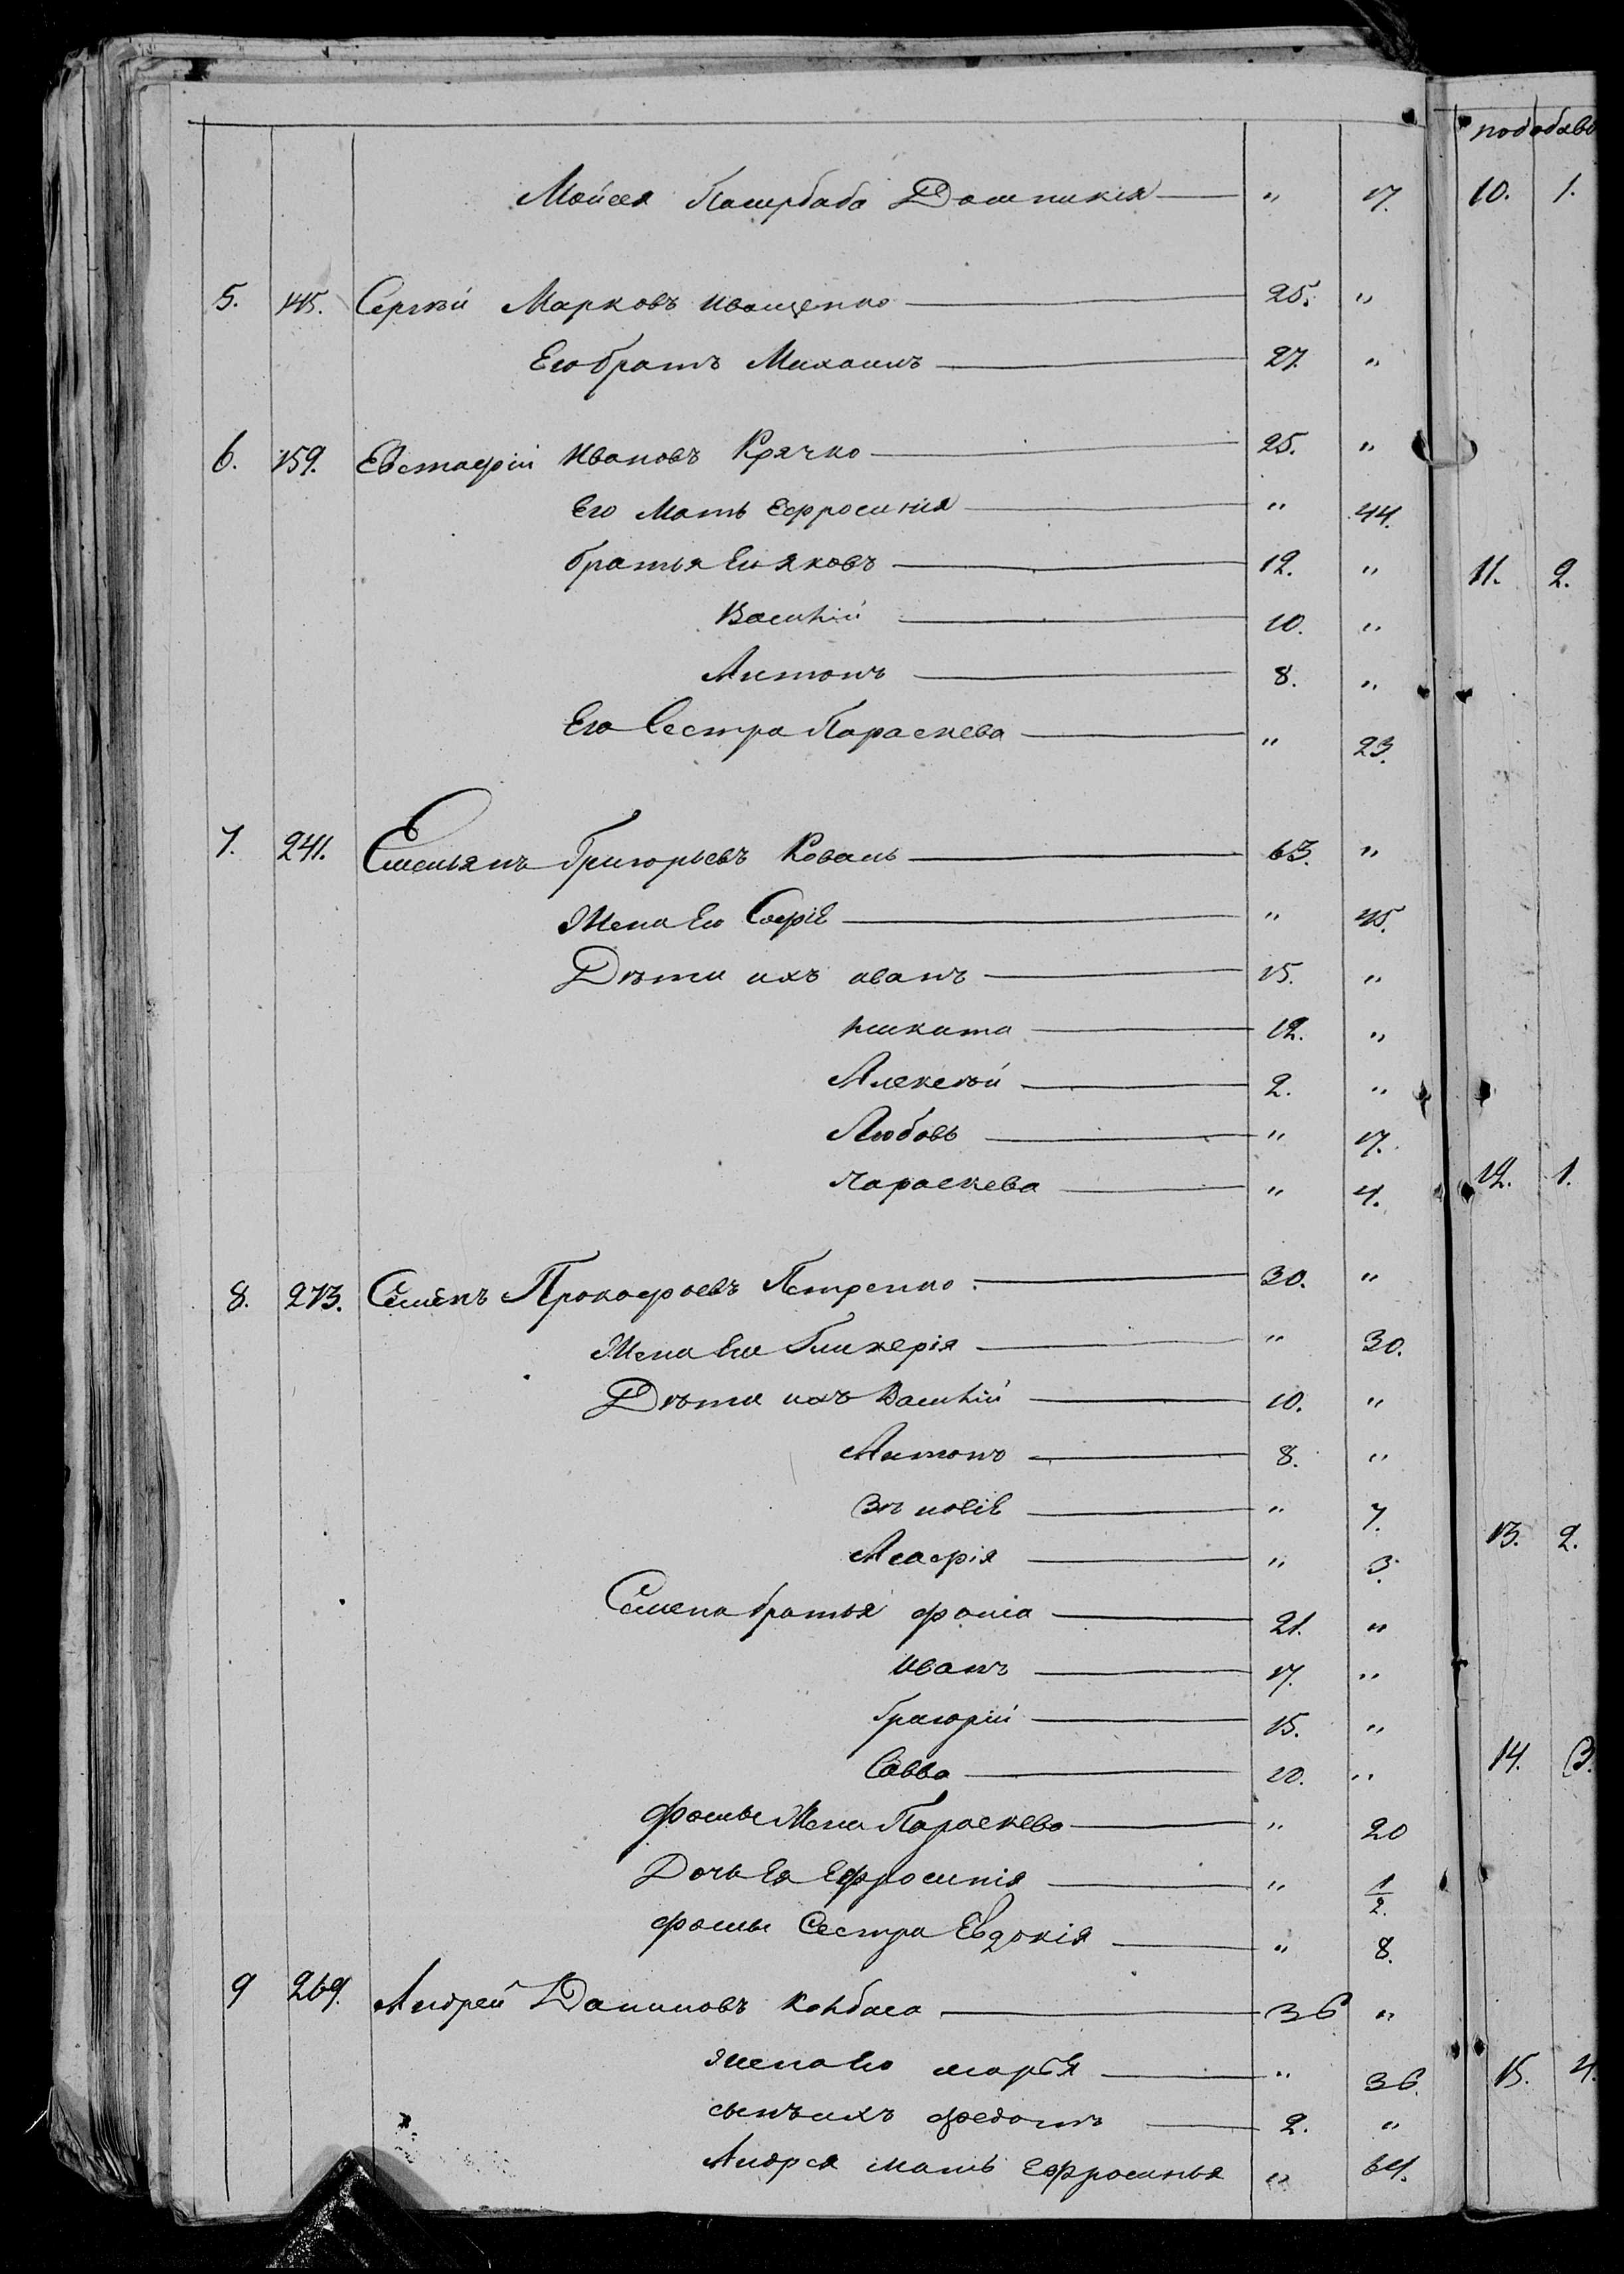 Мойсея Домникія " 17.
5. 145. Сергѣй Марковъ Иващенко 25. "
Его братъ Михаилъ 27. "
6. 159. Евстафій Ивановъ Крячко 25. "
Его Мать Ефросинія " 44.
братья Его Яковъ 12. "
Василій 10. "
Антонъ 8. "
Его Сестра Параскева " 23.
7. 241. Емельянъ Григорьевъ Коваль 63. "
Жена Его Софіѣ " 45.
Дѣти ихъ иванъ 15. "
никита 12. "
Алексѣй 2. "
Любовь " 17.
Параскева " 4.
8. 273. Семенъ Прокофьевъ Петренко 30. "
Жена Его Гликерія " 30.
Дѣти ихъ Василій 10. "
Антонъ 8. "
Зѣновіѣ " 7.
Агафія " 3.
Семена братья фома 21. "
иванъ 17. "
Григорій 15. "
Савва 10. "
фомы Жена Параскева " 20
Дочь Ея Ефросинія " 1/2.
фомы Сестра Евдокія " 8.
9 269. Андрей Даниловъ Колбаса 36 "
жена Его марья " 36.
сынъ ихъ федотъ 2. "
Андрея мать Ефросинья " 64.
10. 1.
11. 2.
12. 1.
13. 2.
14. 3.
15. 4.